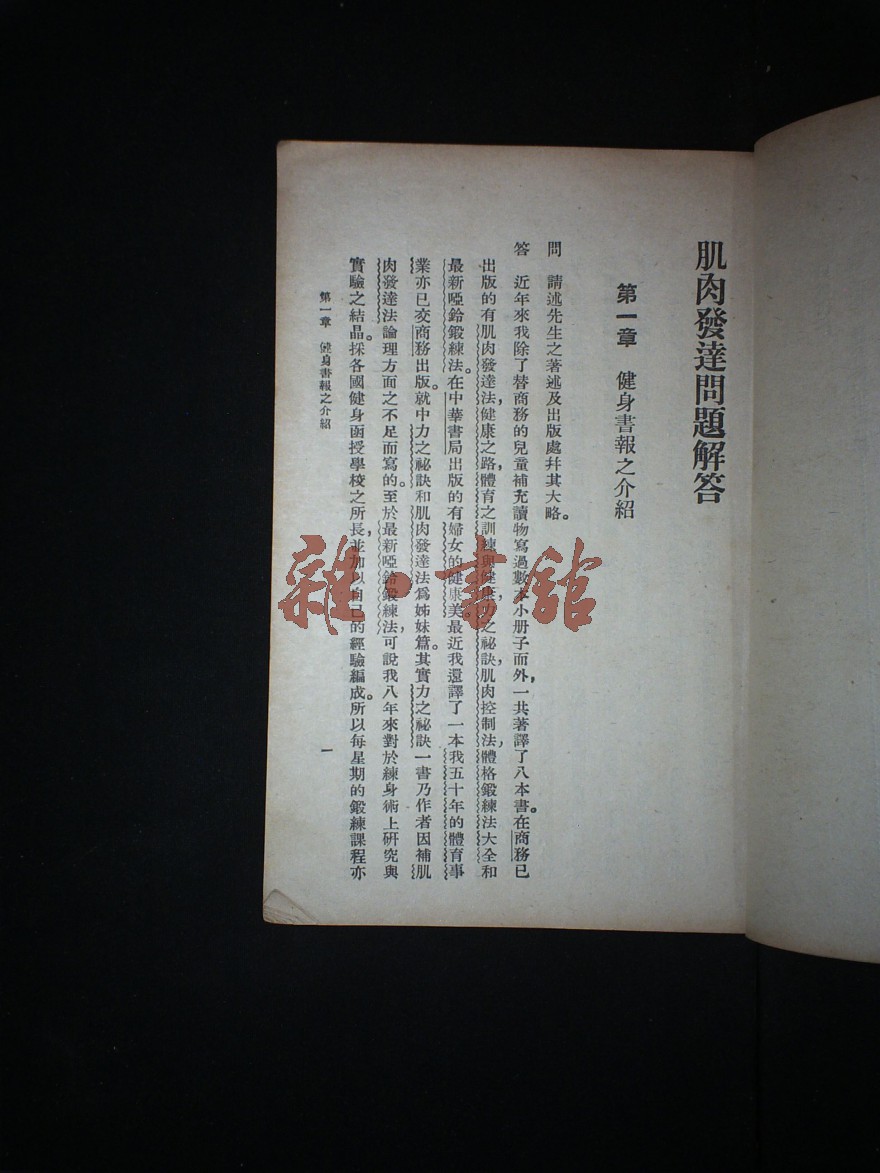 肌肉發達問題解答
第一章　健身書報之介紹
問　請述先生之著述及出版處幷其大略。
答　近年來我除了替商務的兒童補充讀物寫過數本小册子而外，一共著譯了八本書。在商務已
出版的有肌肉發達法，健康之路，體育之訓練與健康，力之祕訣，肌肉控制法，體格鍛練法大全和
最新啞鈴鍛練法。在中華書局出版的有婦女的健康美。最近我還譯了一本我五十年的體育事
業亦已交商務出版。就中力之祕訣和肌肉發達法爲姊妹篇。其實力之祕訣一書乃作者因補肌
肉發達法論理方面之不足而寫的。至於最新啞鈴鍛練法，可說我八年來對於練身術上硏究與
實驗之結晶。採各國健身函授學校之所長，並加以自己的經驗編成。所以每星期的鍛練課程亦
第一章　健身書報之介紹
一
雜·書館